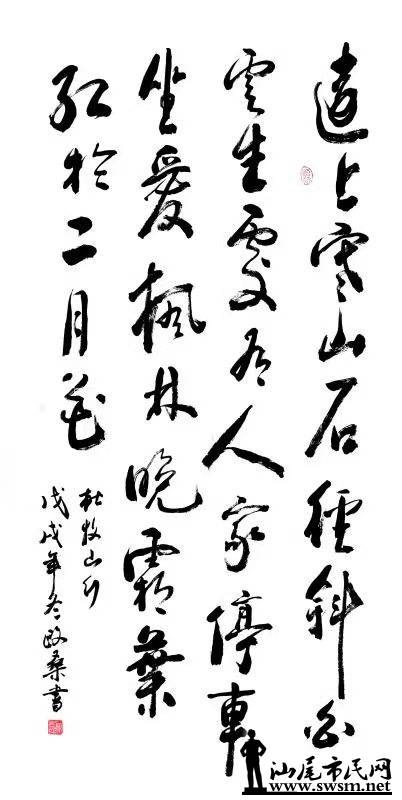 遠上寒山石徑斜白
雲生處有人家停車
坐愛楓林晚霜葉
紅於二月花
杜牧山行
戊戌年冬桑書
汕尾市民网
www.swsm.net